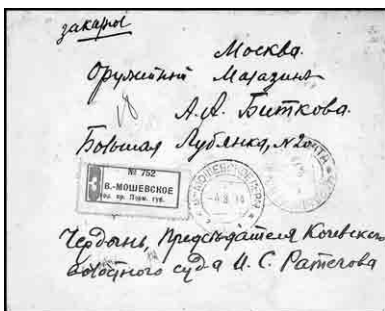 заказное
Москва.
Оружейный Магазинъ
А.А. Биткова.
Большая Лубянка, №20
№ 752
В.-МОШЕВСКОЕ
Пермской губ.
Чердынь, Председателя Кочевскаго
волостного суда И. С. Ратегова